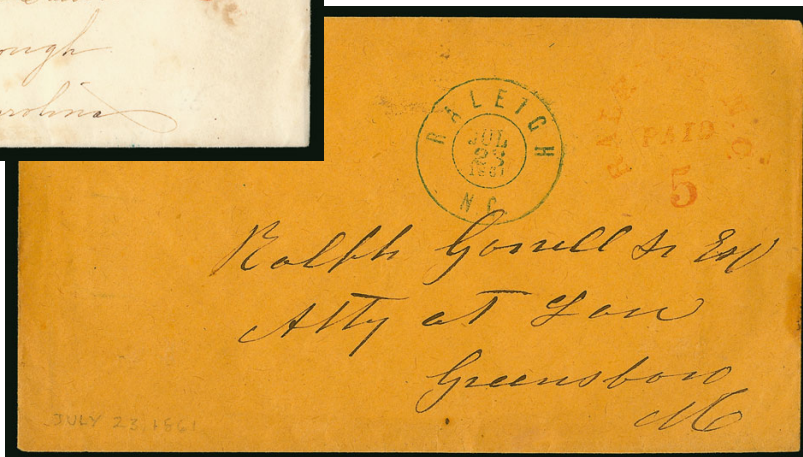 ough
arolina
RALEIGH
JUL
23
1861
N C.
RALEIGH N.C.
PAID
5
Ralph Gorrell Jr Esq
Atty at Law
Greensboro
NC
JULY 23 1861